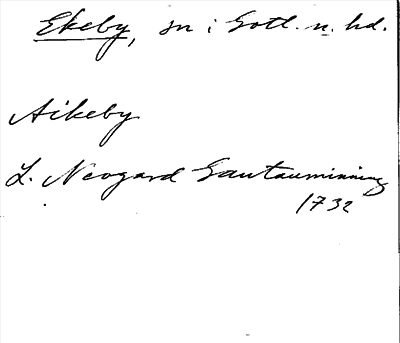 Ekeby, sn i Gotl. n. hd.
Aikeby
L. Neogard Gautauminning
1732